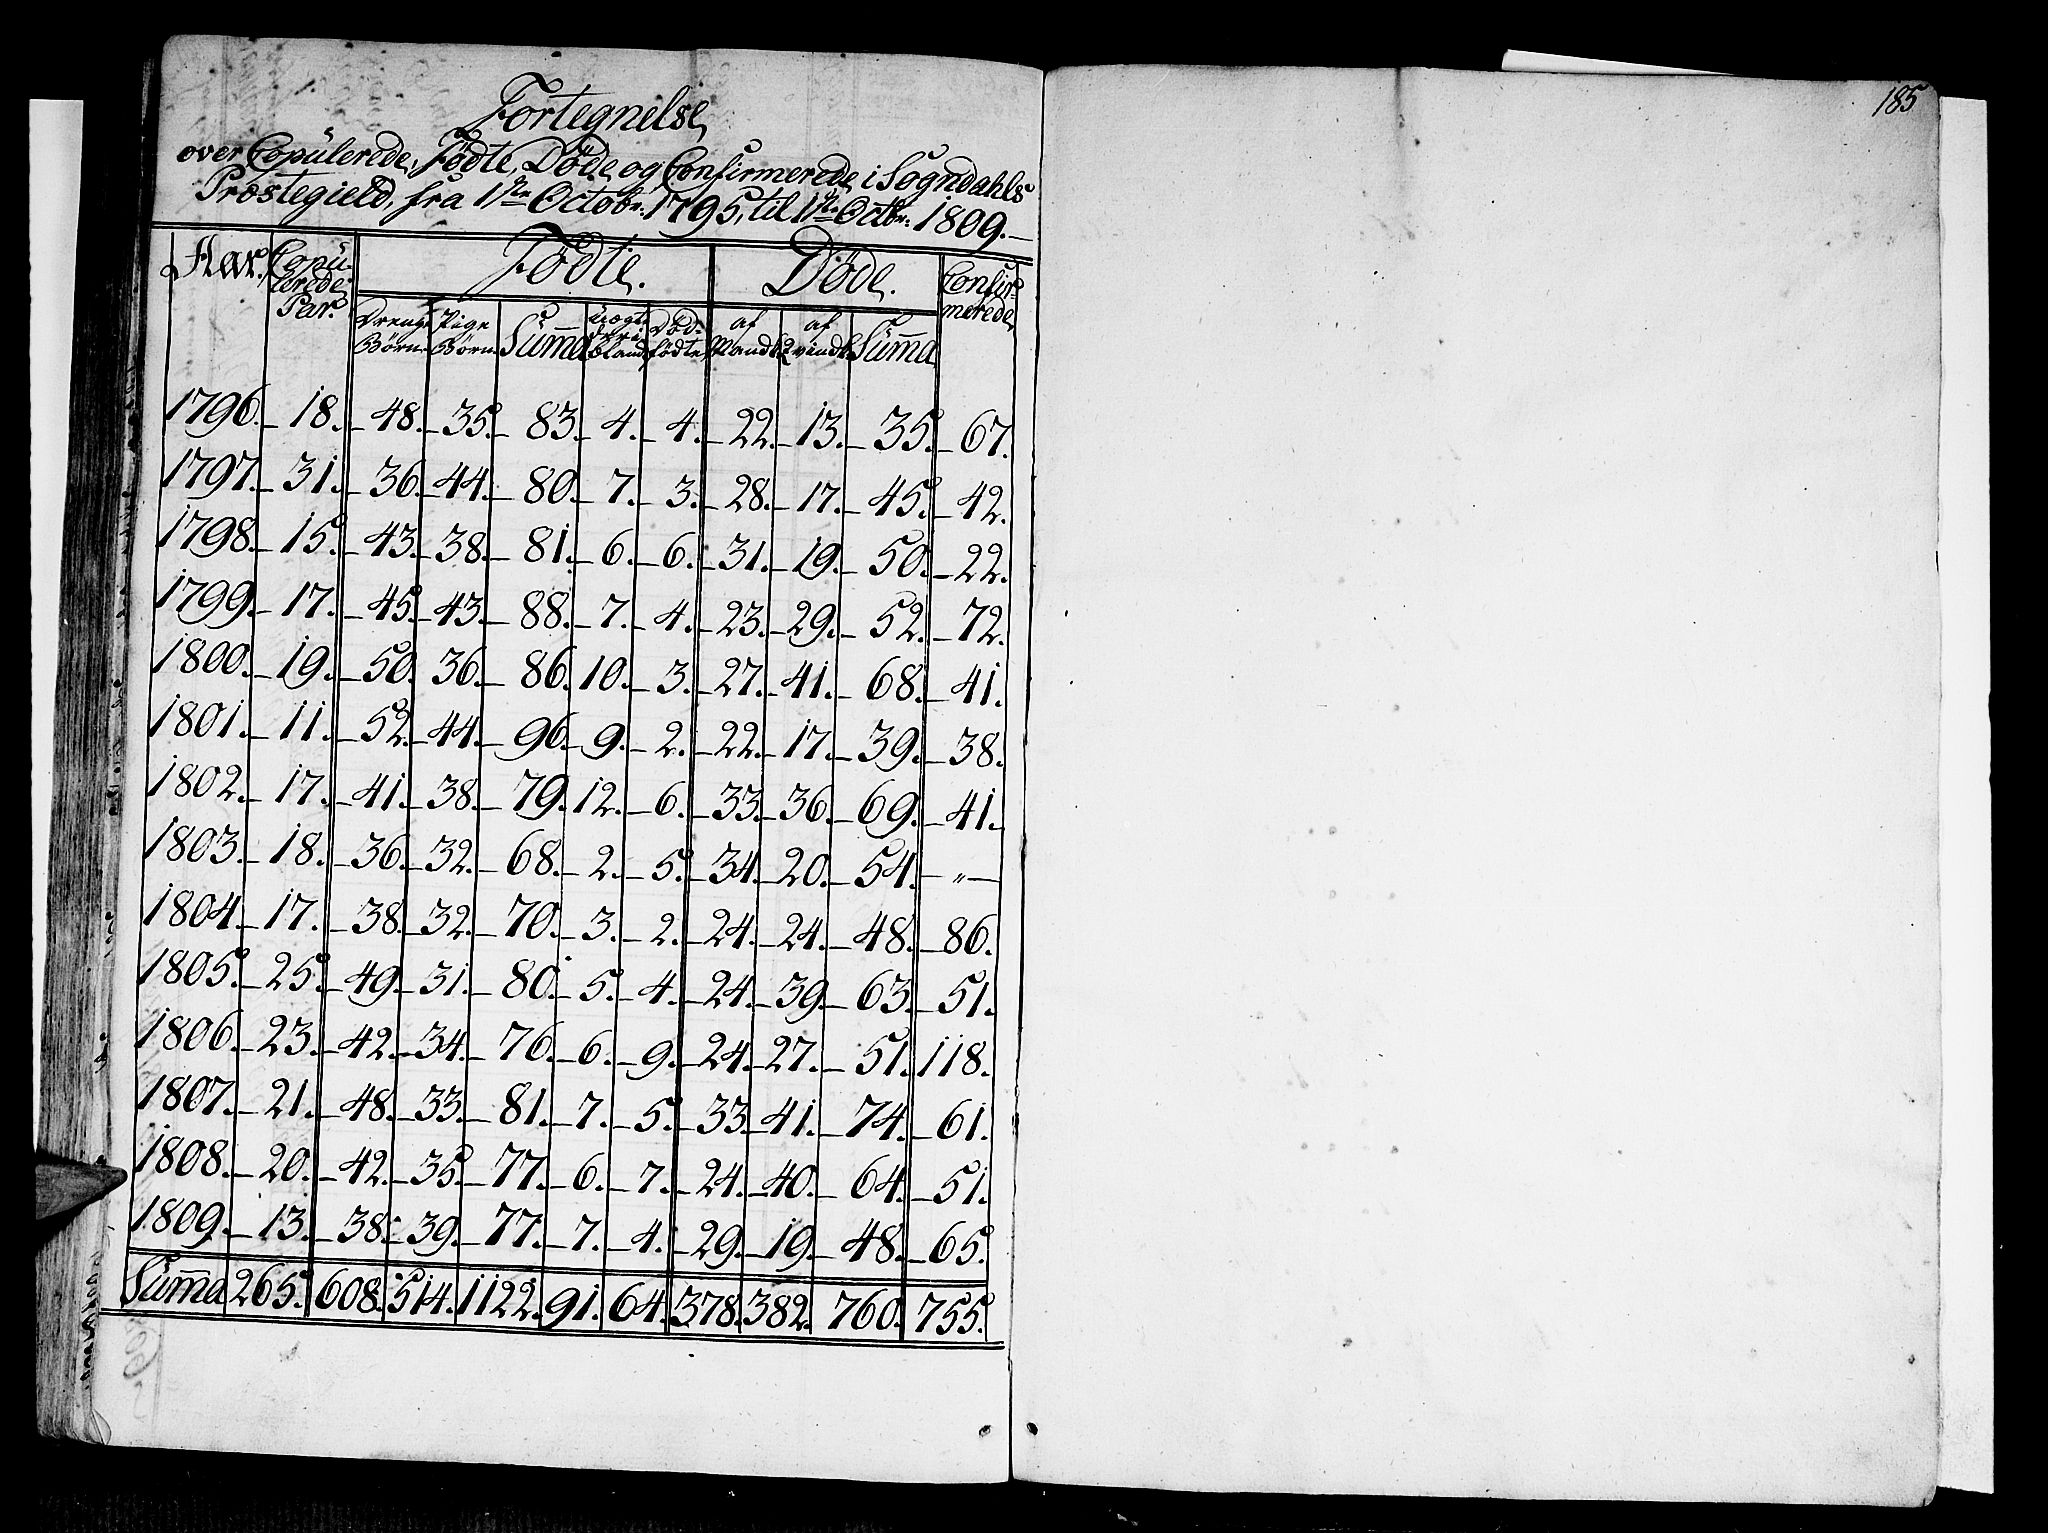 Fortegnelse
over Copülerede, Födte, Döde og Confirmerede i Sogndahls
Præstegield, fra 1ste Octobr: 1795, til 1ste Octbr: 1809.
Aar. Copülerede Par. Födte. Döde. Confirmerede
Drenge Börn. Pige Börn. Sum̄a Uægte deri bland Dödfödte af Mandk. af Qvindk. Sum̄a
1796. 18. 48. 35. 83. 4. 4. 22. 13. 35. 67.
1797. 31. 36. 44. 80. 7. 3. 28. 17. 45. 42.
1798. 15. 43. 38. 81. 6. 6. 31. 19. 50. 22.
1799. 17. 45. 43. 88. 7. 4. 23. 29. 52. 72.
1800. 19. 50. 36. 86. 10. 3. 27. 41. 68. 41.
1801. 11. 52. 44. 96. 9. 2. 22. 17. 39. 38.
1802. 17. 41. 38. 79. 12. 6. 33. 36. 69. 41.
1803. 18. 36. 32. 68. 2. 5. 34. 20. 54. — „ —
1804. 17. 38. 32. 70. 3. 2. 24. 24. 48. 86.
1805. 25. 49. 31. 80. 5. 4. 24. 39. 63. 51.
1806. 23. 42. 34. 76. 6. 9. 24. 27. 51. 118.
1807. 21. 48. 33. 81. 7. 5. 33. 41. 74. 61.
1808. 20. 42. 35. 77. 6. 7. 24. 40. 64. 51.
1809. 13. 38. 39. 77. 7. 4. 29. 19. 48. 65.
Sum̄a 265. 608. 514. 1122. 91. 64. 378. 382. 760. 755.
185